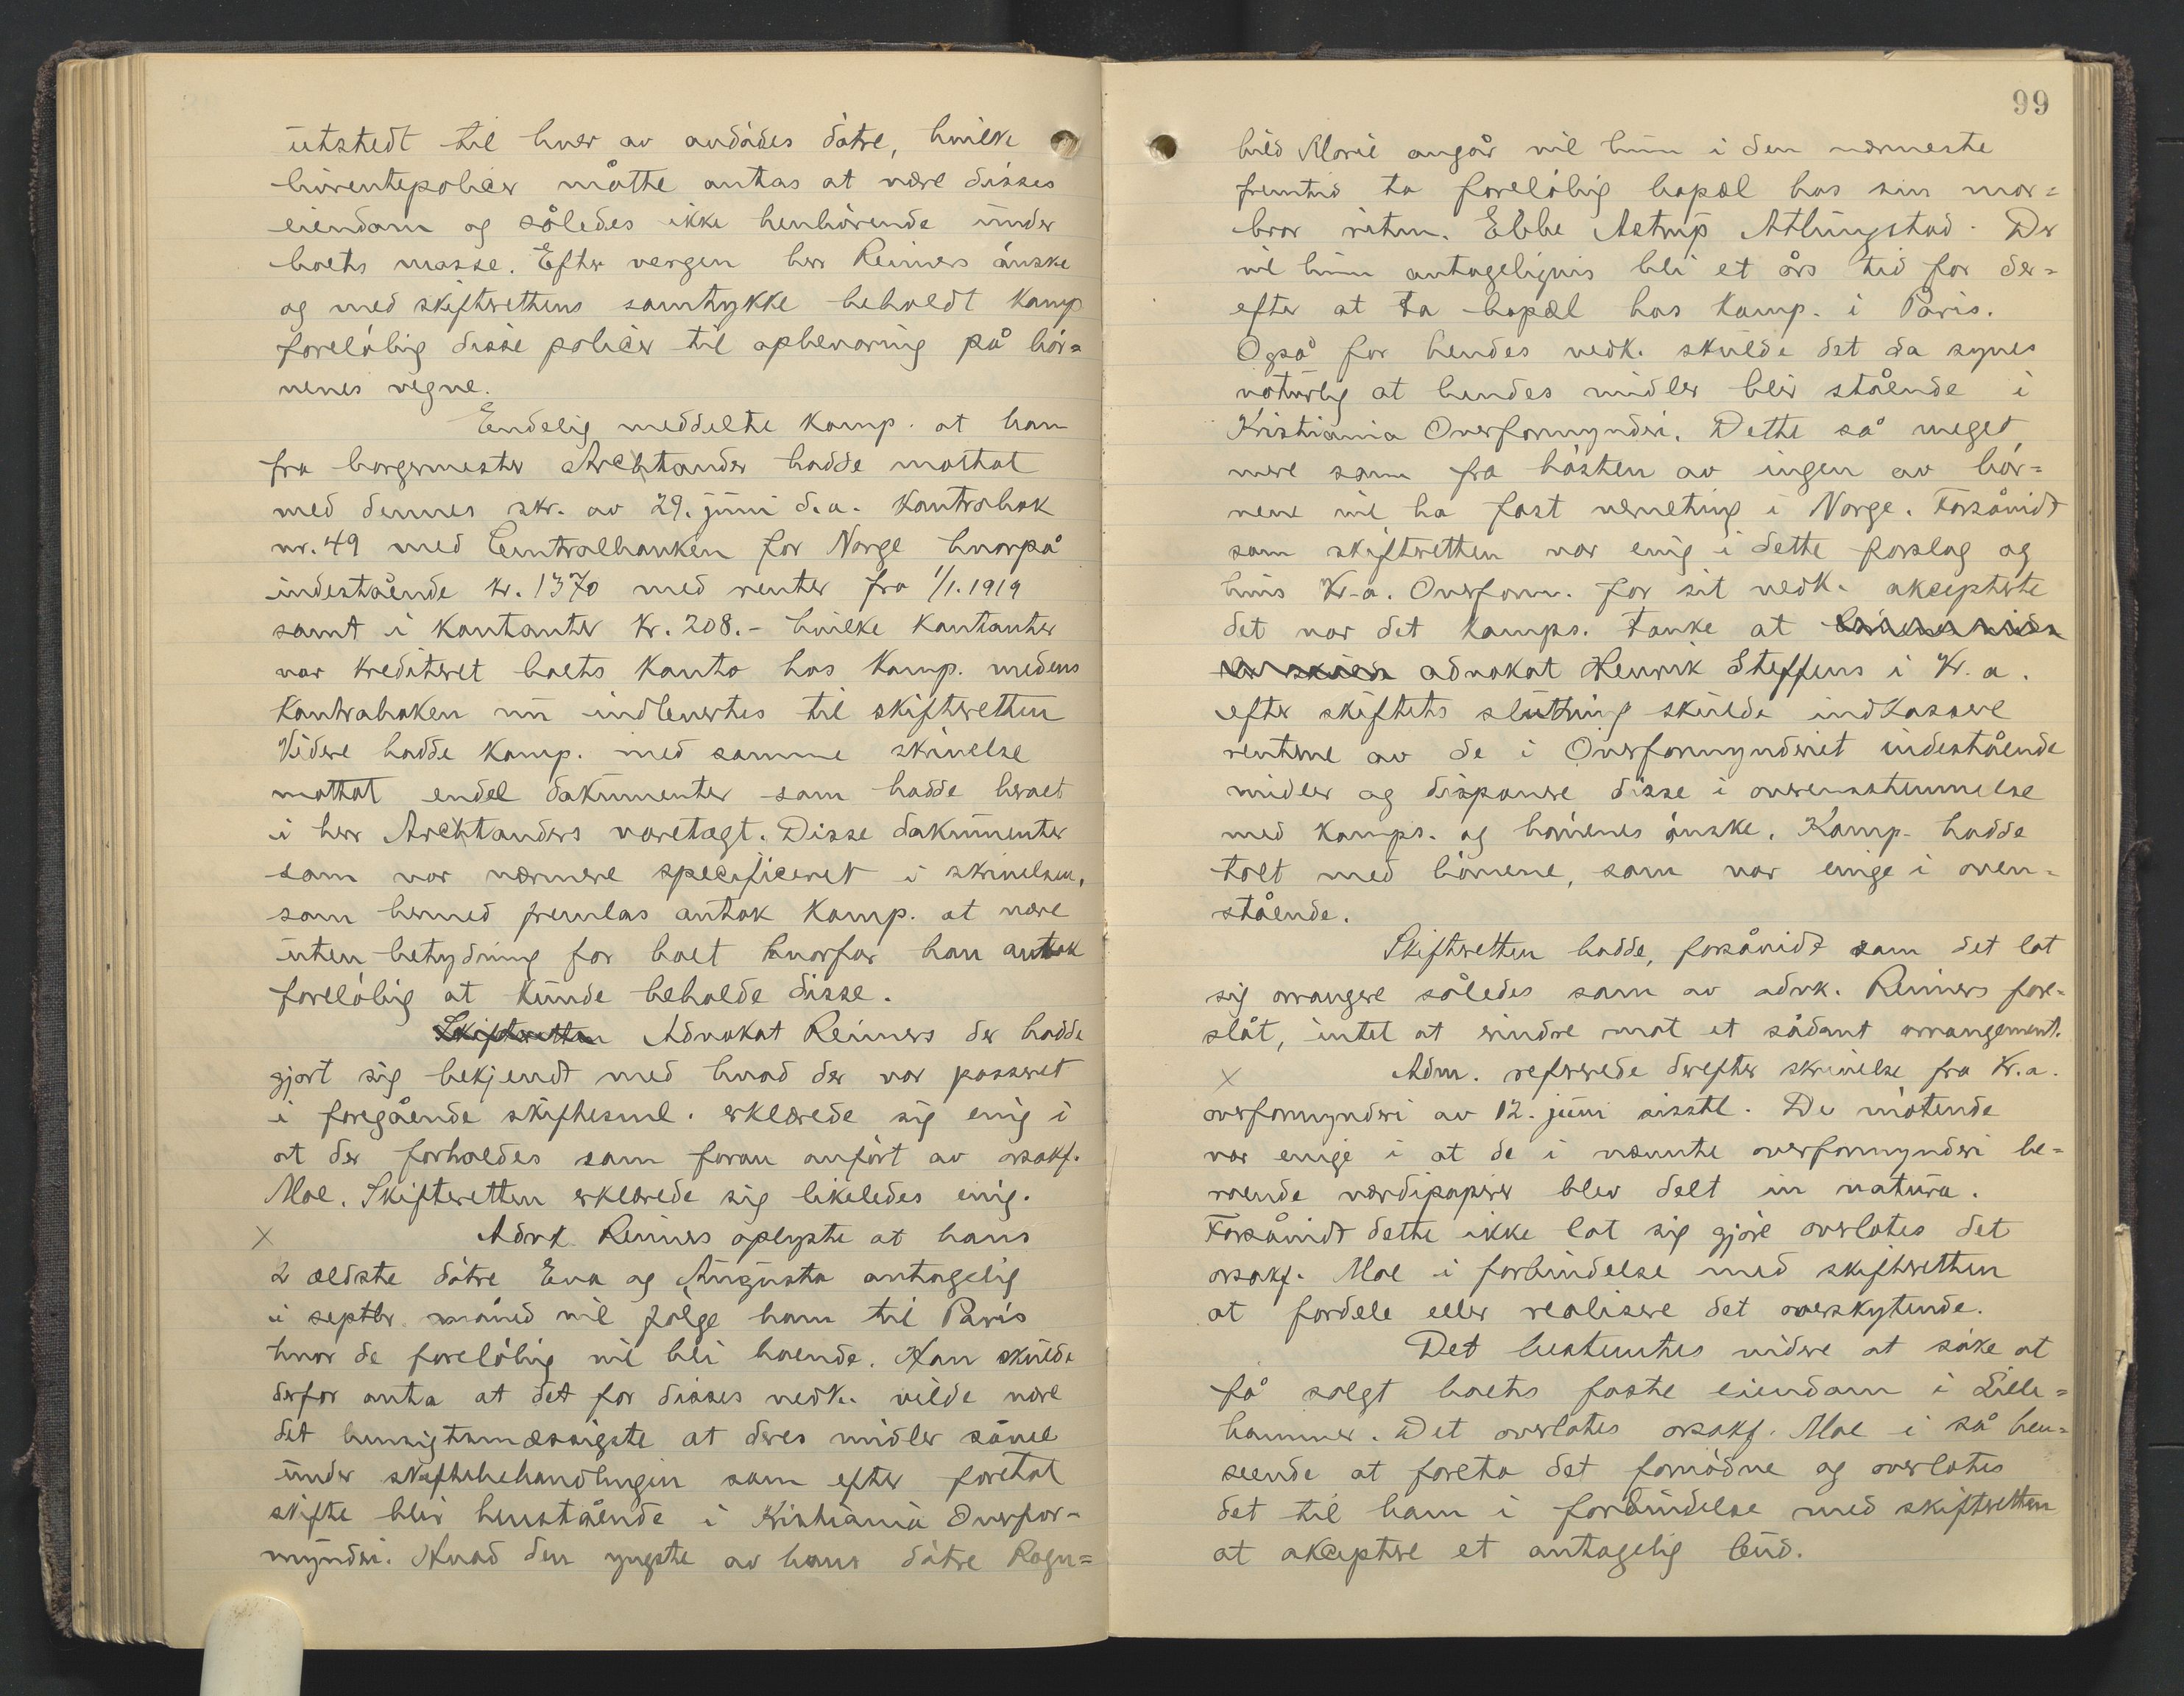 utstedt til hver av avdødes døtre, hvilke
livrentepolicer måtte antas at være disses
eiendom og således ikke henhørende under
boets masse. Efter vergen herr Reimers ønske
og med skifterettens samtykke beholdt komp
foreløbig disse policer til opbevaring på bør=
nenes vegne.
Endelig meddelte komp. at han
fra borgermester Arctander hadde mottat
med dennes skr. av 29. juni d.a. kontrabok
nr. 49 med Centralbanken for Norge hvorpå
indestående kr. 1370 med renter fra 1/1. 1919
samt i kontanter kr. 208.- hvilke kontanter
var krediteret boets konto hos komp. medens
kontraboken nu indlevertes til skifteretten
Videre hadde komp. med samme skrivelse
mottat endel dokumenter som hadde beroet
i herr Arctanders varetægt. Disse dokumenter
som var nærmere specificeret i skrivelsen,
som herved fremlas antok komp. at være
uten betydning for boet hvorfor han antok
foreløbig at kunde beholde disse.
Skifteretten Advokat Reimers der hadde
gjort sig bekjendt med hvad der var passeret
i foregående skiftesml. erklærede sig enig i
at der forholdes som foran anført av orsakf.
Moe. Skifteretten erklærede sig likeledes enig.
x Advk. Reimers oplyste at hans
2 ældste døtre Eva og Augusta antagelig
i septbr. måned vil følge ham til Paris
hvor de foreløbig vil bli boende. Han skulde
derfor anta at det for disses vedk. vilde være
det hensigtsmæssigste at deres midler såvel
under skiftebehandlingen som efter foretat
skifte blir henstående i Kristiania Overfor-
mynderi. Hvad den yngste av hans døtre Ragn=
99
hild Marie angår vil hun i den nærmeste
fremtid ta foreløbig bopæl hos sin mor=
bror ritm. Ebbe Astrup Atlungstad. Der
vil hun antageligvis bli et års tid for der=
efter at ta bopæl hos komp. i Paris.
Også for hendes vedk. skulde det da synes
naturlig at hendes midler blir stående i
Kristiania Overformynderi. Dette så meget
mere som fra høsten av ingen av bør=
nene vil ha fast verneting i Norge. Forsåvidt
som skifteretten var enig i dette forslag og
hvis Kr-a. Overform. for sit vedk. akcepterte
det var det komps. tanke at
advokat Henrik Steffens i Kr. a.
efter skiftets slutning skulde indkassere
renterne av de i Overformynderiet indestående
midler og disponere disse i overensstemmelse
med komps. og børnenes ønske. Komp. hadde
talt med børnene, som var enige i oven=
stående.
Skifteretten hadde, forsåvidt som det lot
sig arrangere således som av advk. Reimers fore=
slåt, intet at erindre mot et sådant arrangement.
x Adm. refererede derefter skrivelse fra Kr.a.
overformynderi av 12. juni sisstl. De møtende
var enige i at de i nævnte overformynderi be=
roende værdipapirer blev delt in natura.
Forsåvidt dette ikke lot sig gjøre overlotes det
orsakf. Moe i forbindelse med skifteretten
at fordele eller realisere det overskytende.
Det bestemtes videre at søke at
få solgt boets faste eiendom i Lille=
hammer. Det overlotes orsakf. Moe i så hen=
seende at foreta det fornødne og overlotes
det til ham i forbindelse med skifteretten
at akceptere et antagelig bud.